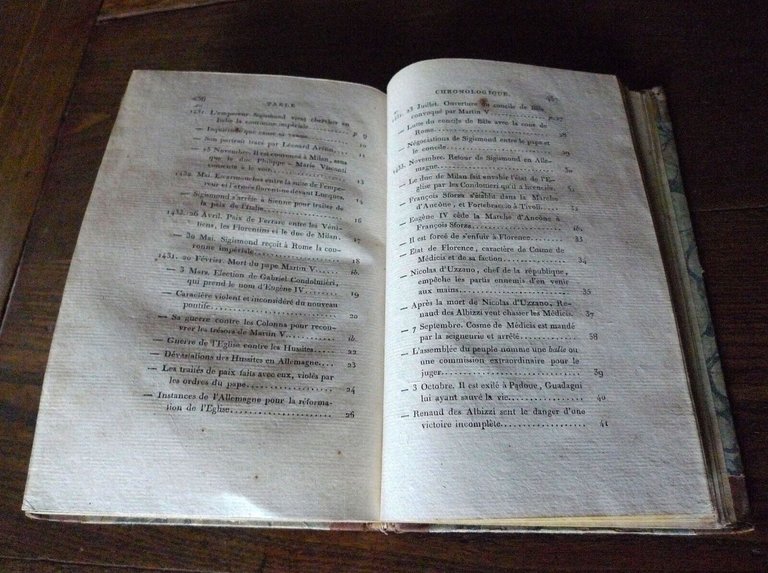 436 TABLE
1431. L'empereur Sigismond vient chercher en
Italie la couronne impériale
p. 9
— Inquiétude que cause sa venue
10
— Son portrait tracé par Léonard Arétin
ib.
— 25 Novembre. Il est couronné à Milan, sans
que le duc Philippe-Marie Visconti
consente à le voir
1432. Mai. Escarmouches entre la suite de l'empe-
reur et l'armée florentine devant Lucques
— Sigismond s'arrête à Sienne pour traiter de
la paix de l'Italie
16
1433. 26 Avril. Paix de Ferrare entre les Véni-
tiens, les Florentins et le duc de Milan.
17
— 30 Mai. Sigismond reçoit à Rome la cou-
ronne impériale
18
1431. 20 Février. Mort du pape Martin V
ib.
— 3 Mars. Election de Gabriel Condolmiéri,
qui prend le nom d'Eugène IV
19
— Caractère violent et inconsidéré du nouveau
pontife
20
— Sa guerre contre les Colonna pour recou-
vrer les trésors de Martin V
ib.
— Guerre de l'Eglise contre les Hussites
22
— Dévastations des Hussites en Allemagne
23
— Les traités de paix faits avec eux, violés par
les ordres du pape
24
— Instances de l'Allemagne pour la réforma-
tion de l'Eglise
26
CHRONOLOGIQUE. 437
1431. 23 Juillet. Ouverture du concile de Bâle
convoqué par Martin V
p. 27
— Lutte du concile de Bâle avec la cour de
Rome
28
— Négociations de Sigismond entre le pape et
le concile
1433. Novembre. Retour de Sigismond en Alle-
magne
— Le duc de Milan fait envahir l'état de l'E-
glise par les Condottiéri qu'il a licenciés
31
— François Sforza s'établit dans la Marche
d'Ancône, et Fortebraccio à Tivoli
32
— Eugène IV cède la Marche d'Ancône à
François Sforza
ib.
— Il est forcé de s'enfuir à Florence
33
— Etat de Florence, caractère de Cosme de
Médicis et de sa faction
34
— Nicolas d'Uzzano, chef de la république,
empêche les partis ennemis d'en venir
aux mains
35
— Après la mort de Nicolas d'Uzzano, Re-
naud des Albizzi veut chasser les Médicis.
37
— 7 Septembre. Cosme de Médicis est mandé
par la seigneurie et arrêté
38
— L'assemblée du peuple nomme une balie ou
une commission extraordinaire pour le
juger
39
— 3 Octobre. Il est exilé à Padoue, Guadagni
lui ayant sauvé la vie
40
— Renaud des Albizzi sent le danger d'une
victoire incomplète
41